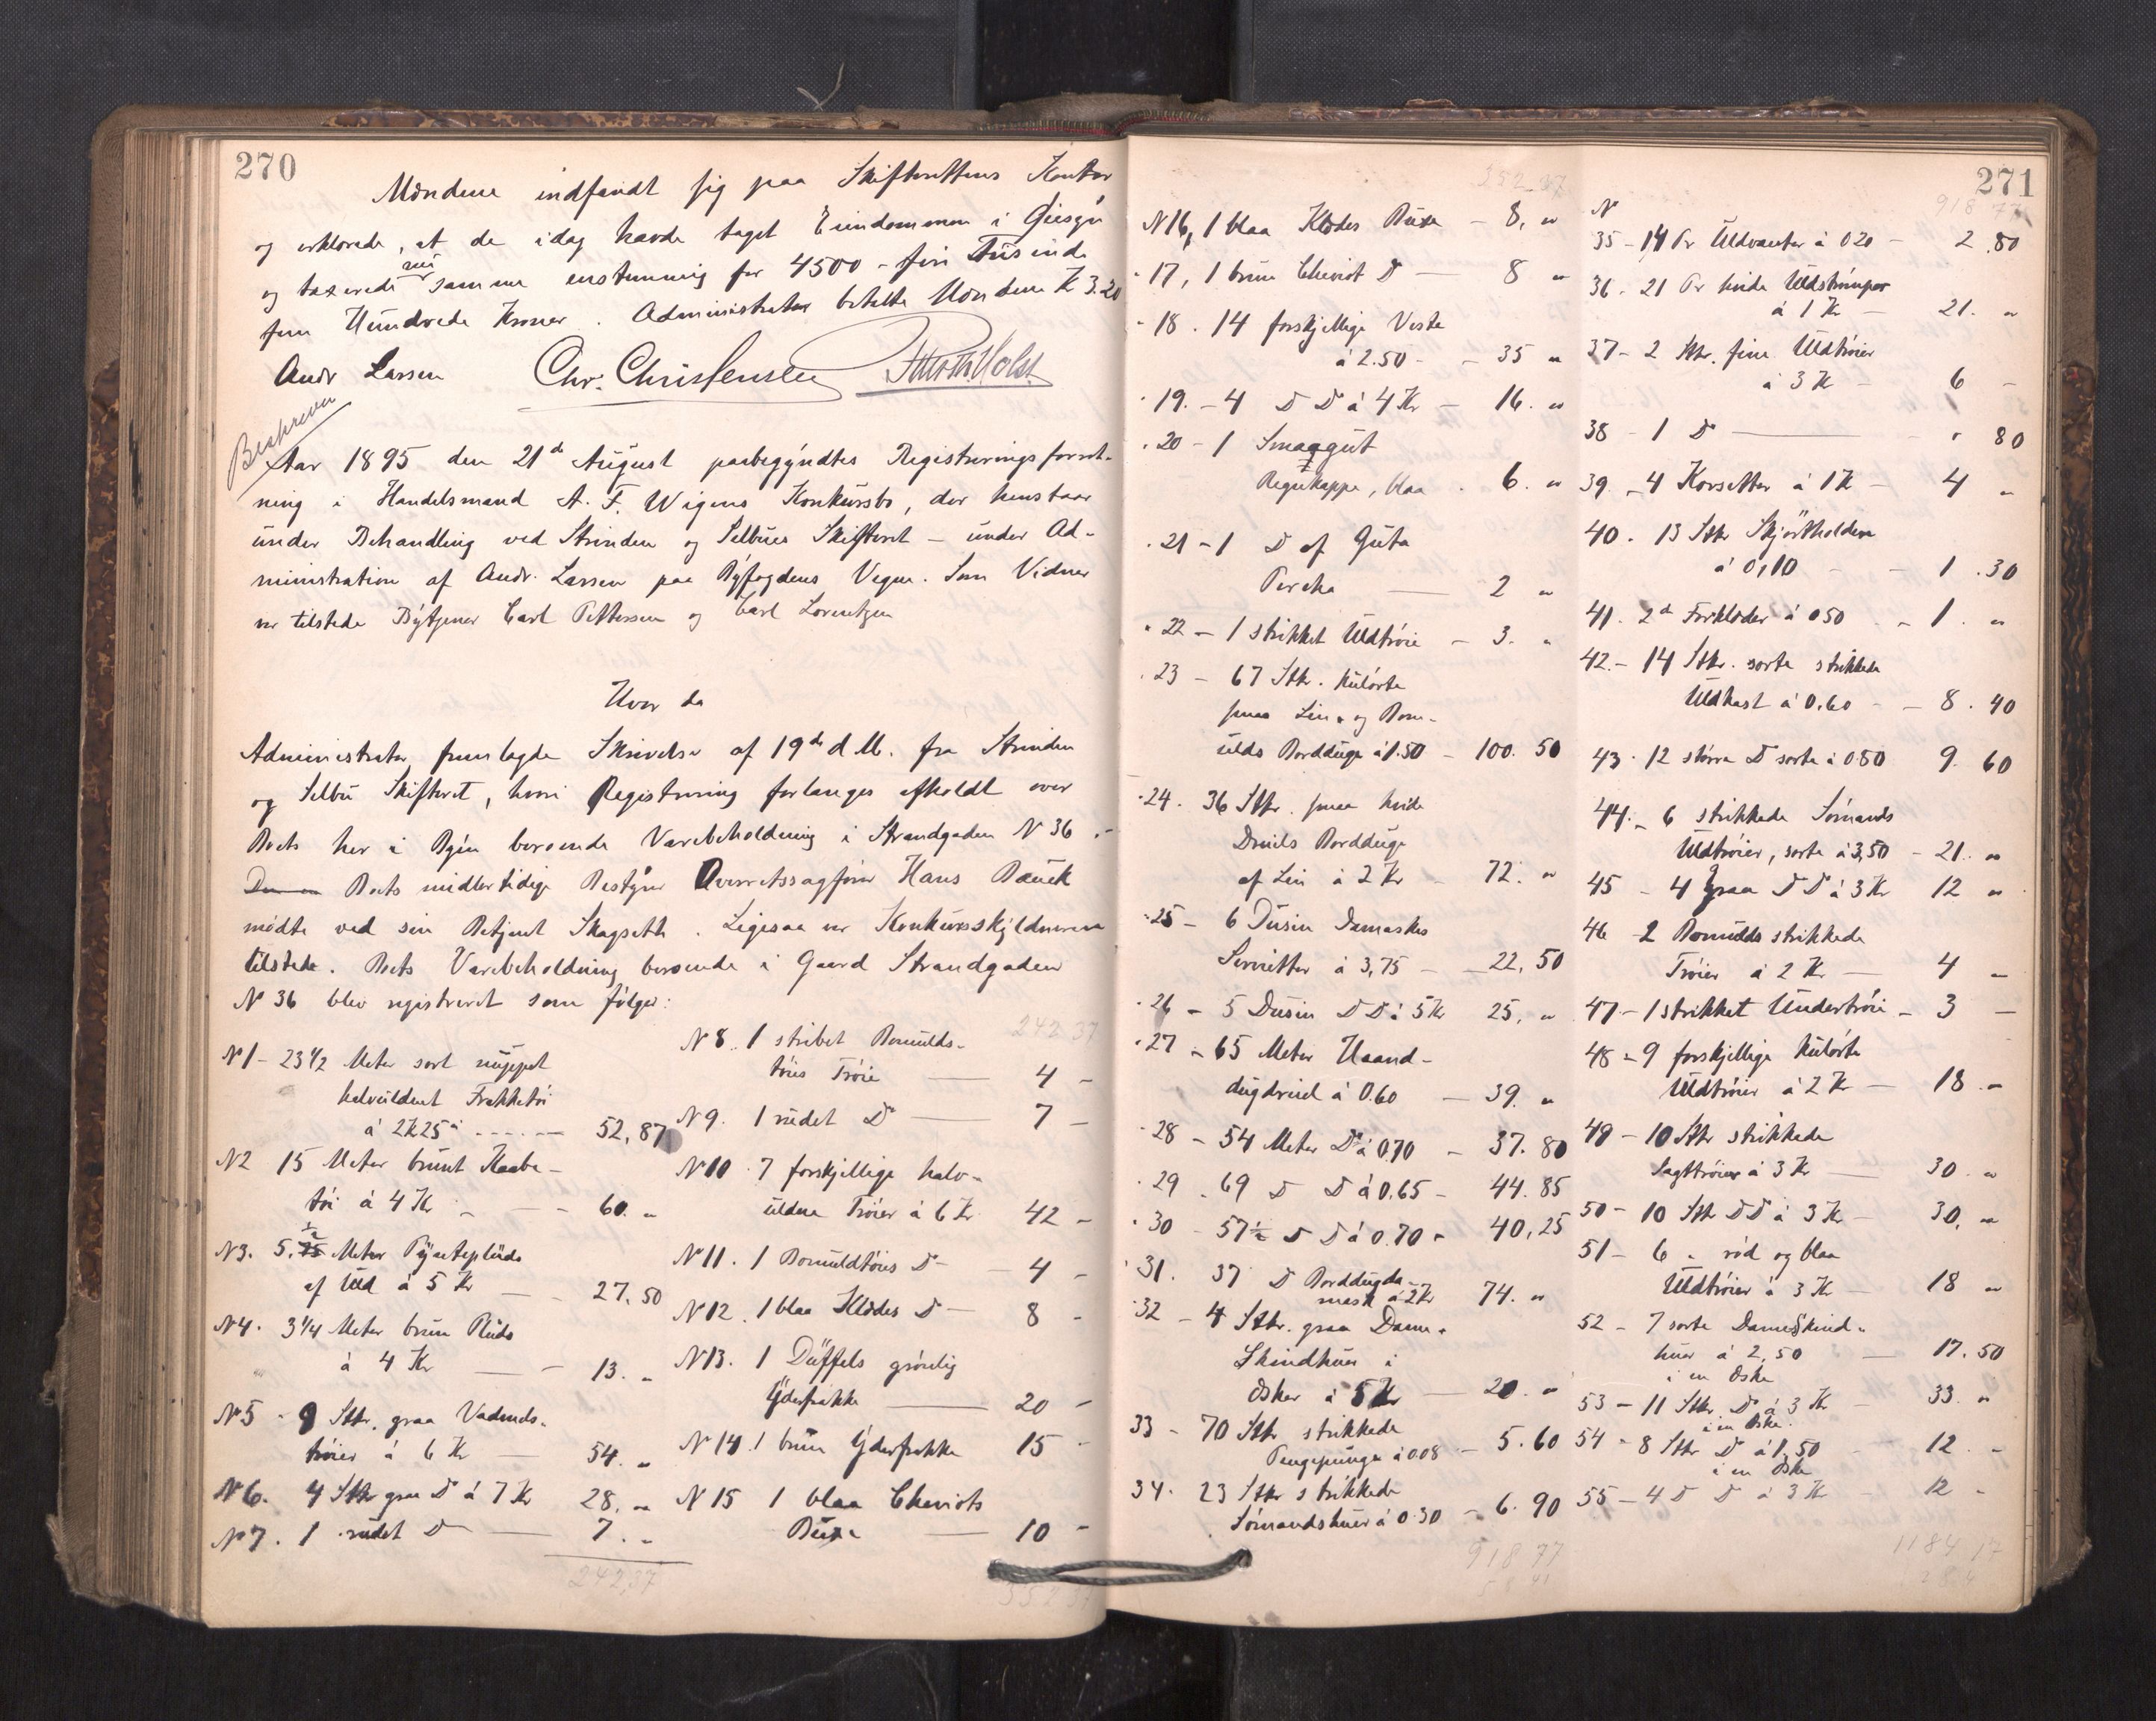 270
Mændene indfandt sig paa Skifterettens Kontor
og erklærede, at de idag havde taget Eiendommen i Øiesyn
og taxerede nu samme enstemmig for 4500 - fire Tusinde
fem Hundrede Kroner. Administrator betalte Mændene Kr 3.20
Andr Larsen Chr. Christensen
Beskreven
Aar 1895 den 21de August paabegyndtes Registreringsforret-
ning i Handelsmand A. F. Wigens Konkursbo, der henstaar
under Behandling ved Strinden og Selbues Skifteret - under Ad-
ministration af Andr. Larsen paa Byfogdens Vegne. Som Vidner
var tilstede Bytjener Carl Pettersen og Carl Lorentzen
Hvor da
Administrator fremlagde Skrivelse af 19de d.M. fra Strinden
og Selbu Skifteret, hvori Registrering forlanges afholdt over
Boets her i Byen beroende Varebeholdning i Strandgaden N 36.-
Boets midlertidige Bestyrer Overretssagfører Hans Bauck
mødte ved sin Betjent Skagseth. Ligesaa var Konkursskyldneren
tilstede. Boets Varebeholdning beroende i Gaard Strandgaden
N 36 blev registreret som følger:
N 1 - 23 1/2 Meter sort nuppet
halvuldent Frakketøi
á 2 Kr 25 ø ---- 52,87
N 2 15 Meter brunt Kaabe-
tøi á 4 Kr - - 60. "
N 3. 5 1/2 Meter Pynteplüds
af Uld á 5 Kr - 27.50
N 4. 3 1/4 Meter brun Plüds
á 4 Kr - 13. "
N 5 - 9 Stkr. graa Vadmels-
trøier á 6 Kr - 54. "
N 6. 4 Stkr graa Do á 7 Kr 28. "
N 7. 1 rudet Do - 7. "
242,37
242 37
N 8. 1 stribet Bomulds-
tøies Trøie - 4 -
N 9. 1 rudet Do - 7 -
N 10. 7 forskjellige halv-
uldne Trøier á 6 Kr 42 -
N 11. 1 Bomuldtøies Do - 4 -
N 12. 1 blaa Klædes Do - 8 -
N 13. 1 Düffels grønlig
Yderfrakke - 20 -
N 14. 1 brun Yderfrakke 15 -
N 15 1 blaa Cheviots
Buxe - 10 -
271
N 16, 1 blaa Klædes Buxe - 8, "
17, 1 brun Cheviot Do - 8 "
18. 14 forskjellige Veste
á 2.50 - 35 "
19. - 4 Do Do á 4 Kr - 16. "
20 - 1 Smaagut
Regnkappe, blaa . 6. "
21 - 1 Do af Guta
Percha - 2 "
22 - 1 strikket Uldtrøie - 3. "
23 - 67 Stk. kulørte
smaa Lin- og Bom-
ulds Bordduge á 1.50 - 100. 50
24. 36 Stkr. smaa hvide
Dreils Bordduge
af Lin á 2 Kr - 72. "
25 - 6 Dusin Damaskes
Servietter á 3,75 - 22,50
26 - 5 Dusin Do Do á 5 Kr 25, "
27 - 65 Meter Haand-
dugdreiel á 0.60 - 39. "
28 - 54 Meter Do á 0.70 - 37.80
29 - 69 Do Do á 0.65 - 44.85
30 - 57 1/2 Do Do á 0.70 - 40,25
31. 37 Do Borddugda-
mask á 2 Kr 74. "
32 - 4 Stkr. graa Dame-
Skindhuer i
Æsker á 5 Kr - 20. "
33 - 70 Stk strikkede
Pengepunge á 0.08 - 5.60
34. 23 Stkr strikkede
Sømandshuer á 0.30 - 6.90
918 77
N 918 77
35 - 14 Pr Uldvanter á 0 20 - 2.80
36. 21 Pr hvide Uldstrømper
á 1 Kr - 21. "
37 - 2 Stkr. fine Uldtrøier
á 3 Kr - 6 -
38 - 1 Do - " 80
39 - 4 Korsetter á 1 Kr - 4 "
40. 13 Stkr Skjørtholdere
á 0,10 - 1.30
41. 2 Forklæder á 0 50 - 1. "
42. - 14 Stkr. sorte strikkede
Uldkast á 0.60 - 8.40
43. 12 større Do sorte á 0.80 9. 60
44. - 6 strikkede Sømands
Uldtrøier, sorte á 3,50 - 21. "
45 - 4 graa Do Do á 3 Kr 12 "
46 - 2 Bomulds strikkede
Trøier á 2 Kr - 4 -
47 - 1 strikket Undertrøie - 3 -
48 - 9 forskjellige kulørte
Uldtrøier á 2 Kr - 18 -
49 - 10 Stkr strikkede
Jagttrøier á 3 Kr - 30. "
50 - 10 Stk Do Do á 3 Kr - 30, "
51 - 6 " rød og blaa
Uldtrøier á 3 Kr - 18 "
52 - 7 sorte Dameskind-
huer á 2,50 - 17.50
i en Æske
53 - 11 Stkr Do á 3 Kr - 33. "
i en Æske
54 - 8 Stkr Do á 1,50 - 12. -
i en Æske
55 - 4 Do Do á 3 Kr - 12 -
1184 17